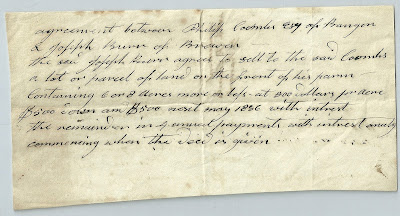 agreement between Philip Coombs Esq of Bangor
& Joseph Burr of Brewer
the said Joseph Burr agrees to sell to the said Coombs
a lot or parcel of land on the front of his farm
containing 6 or 8 Acres more or less at 200 dollars pr acre
$500 down and $500 next may 1836 with interest
the remainder in 4 annual payments with interest annuly
commencing when the Deed is given